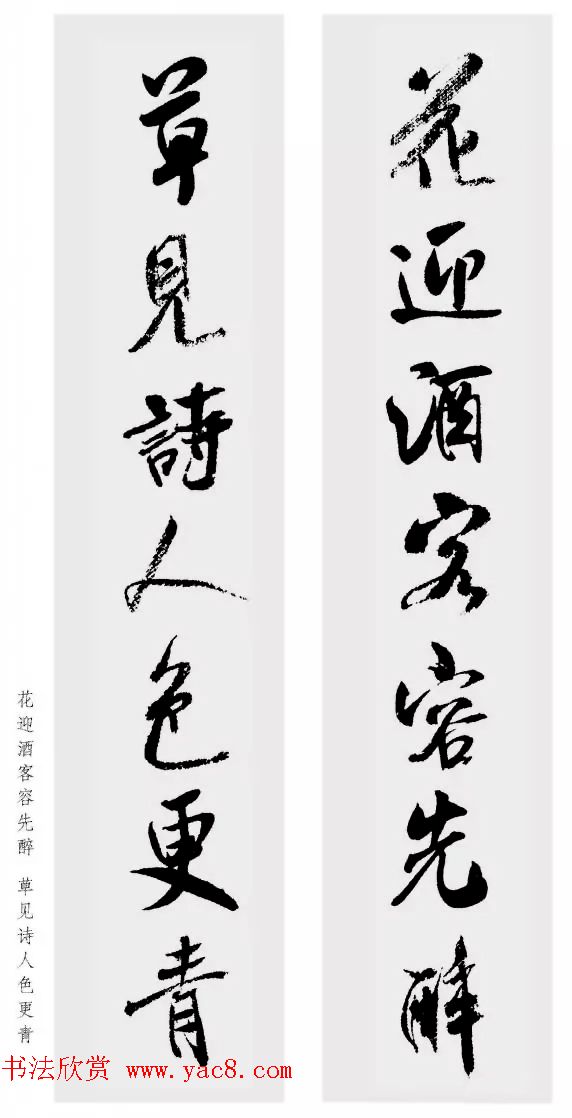 花迎酒客容先醉
草見詩人色更青
花迎酒客容先醉 草见诗人色更青
书法欣赏 www.yac8.com